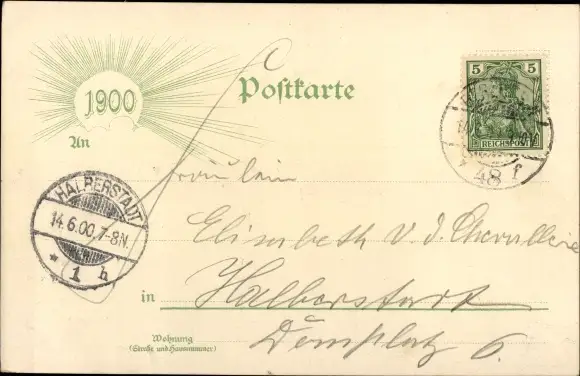 1900
Postkarte
5 5
REICHSPOST
48 f
An
Fräulein
HALBERSTADT
14.6.00.7-8N.
* 1 h
Elisabeth v. d.
in Halberstadt
Domplatz 6.
Wohnung
(Straße und Hausnummer)